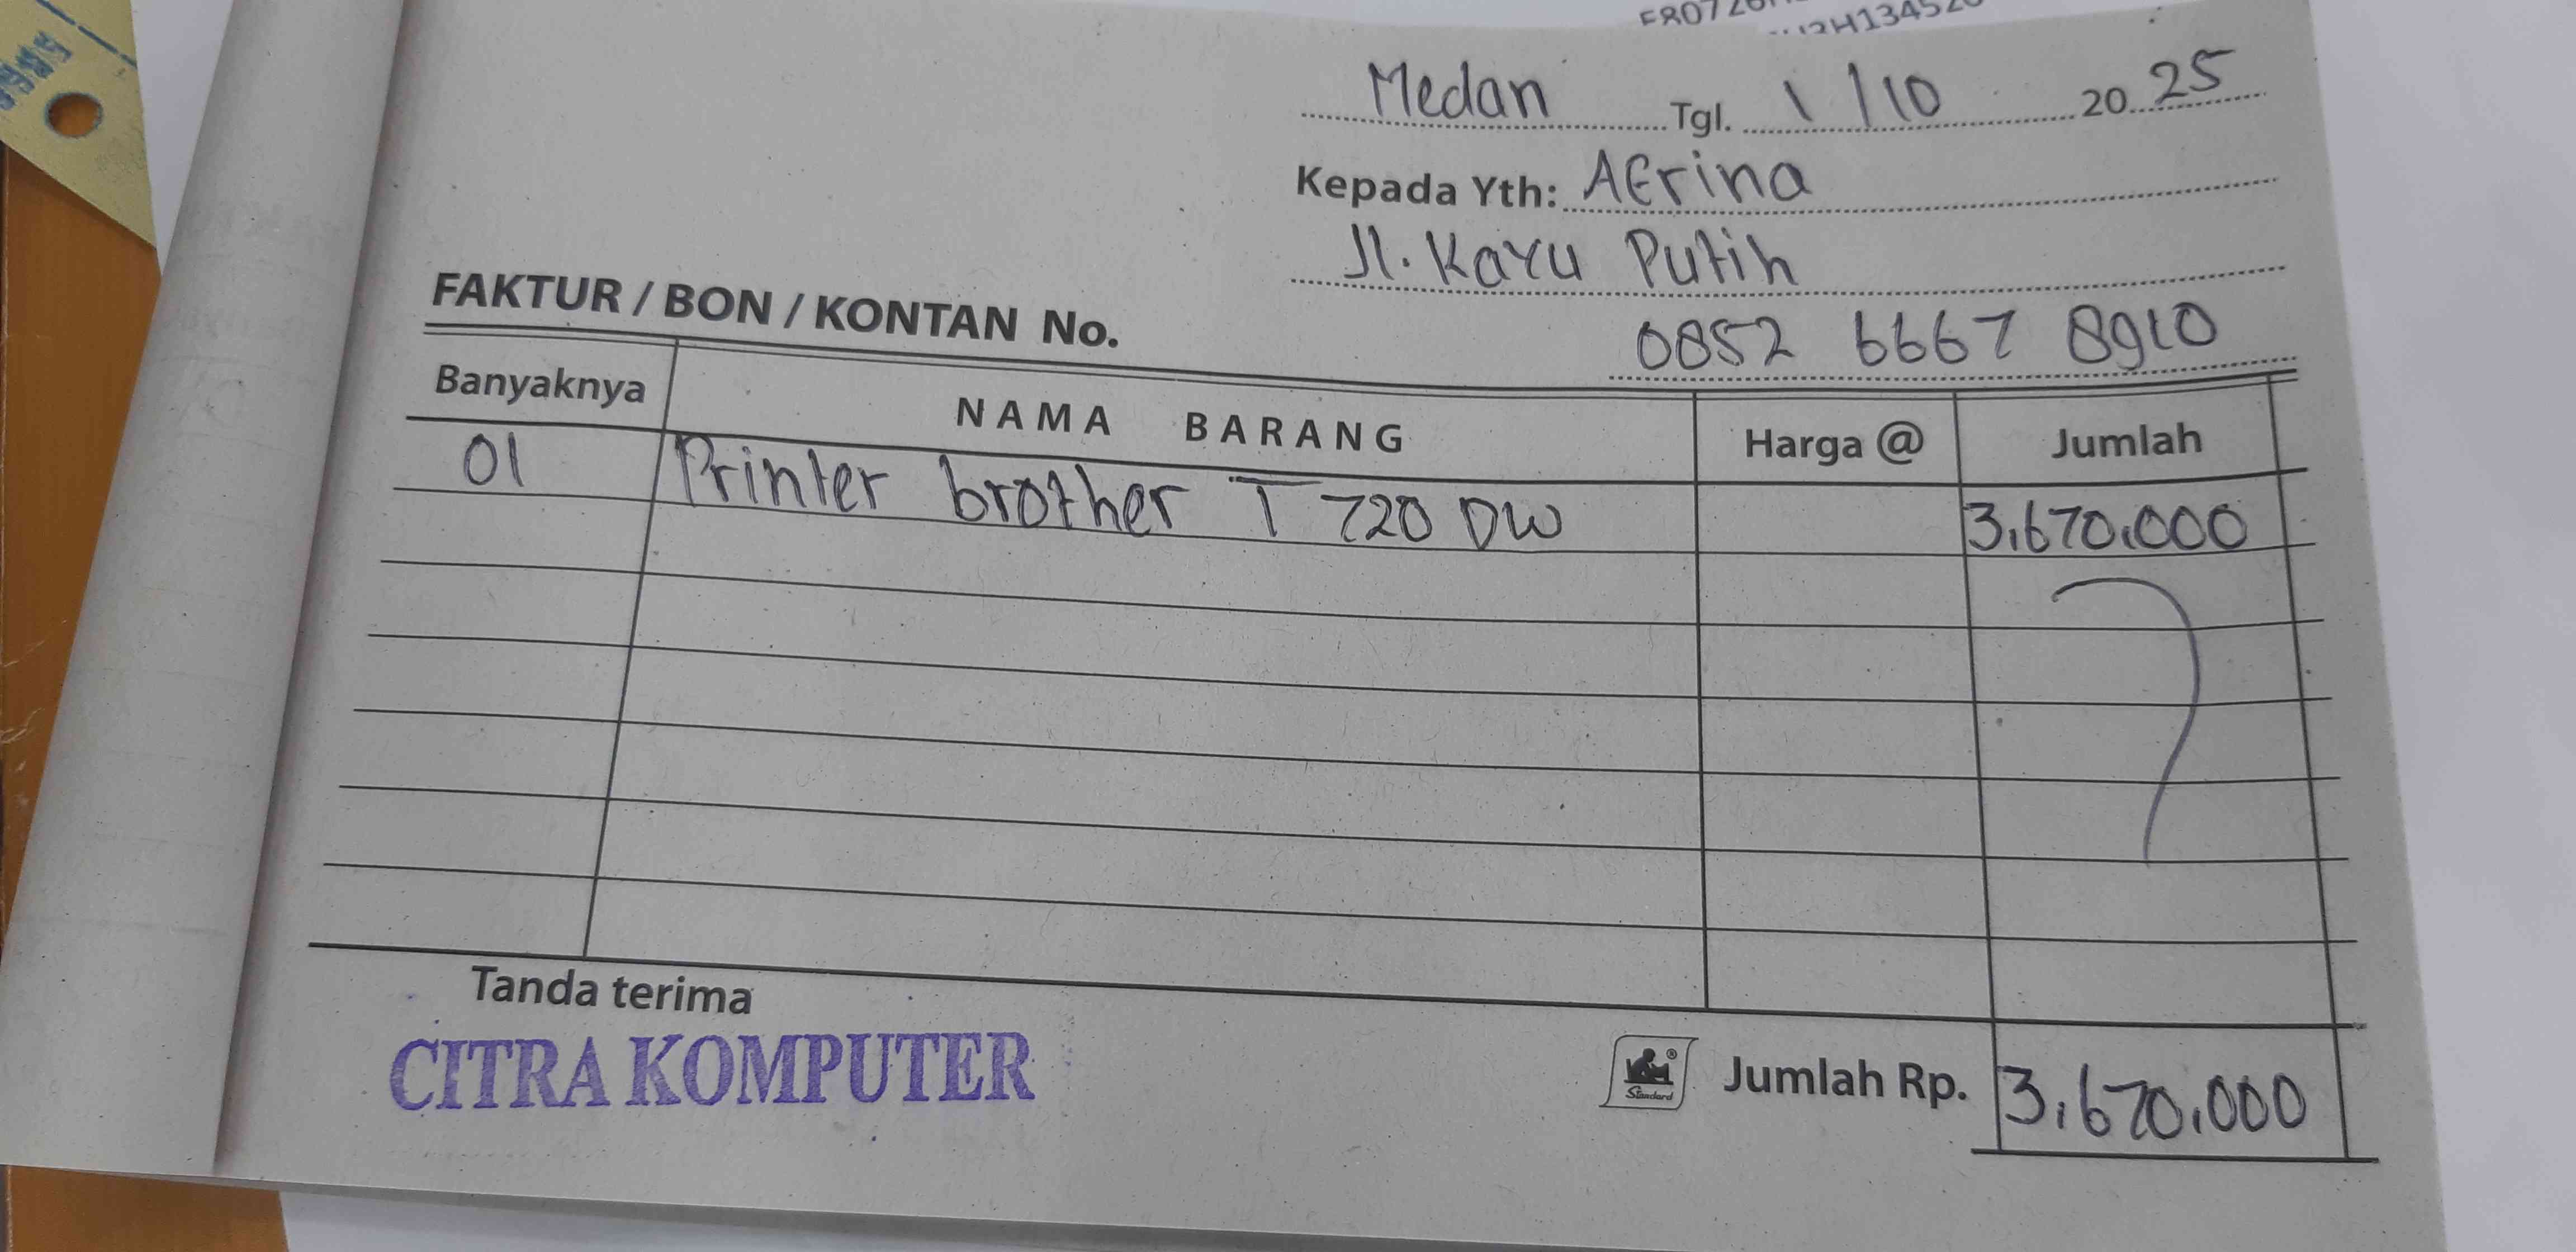 Medan Tgl. 1/10 2025
Kepada Yth: AErina
Jl. Kayu Putih
0852 6667 8910
FAKTUR / BON / KONTAN No.
Banyaknya NAMA BARANG Harga @ Jumlah
01 Printer brother T 720 DW 3,670,000
Tanda terima
CITRA KOMPUTER
Standard Jumlah Rp. 3,670,000